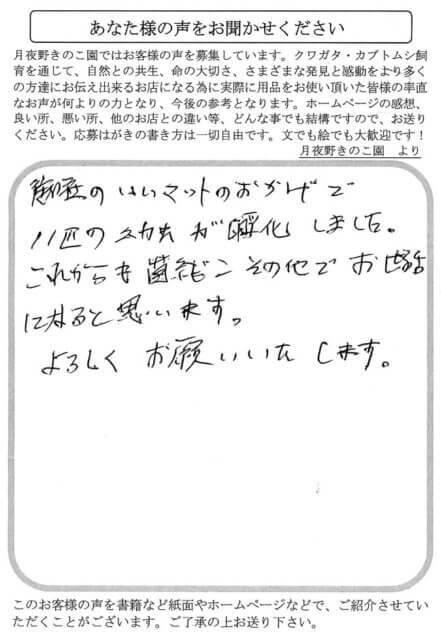 あなた様の声をお聞かせください
月夜野きのこ園ではお客様の声を募集しています。クワガタ・カブトムシ飼
育を通じて、自然との共生、命の大切さ、さまざまな発見と感動をより多く
の方達にお伝え出来るお店になる為に実際に用品をお使い頂いた皆様の率直
なお声が何よりの力となり、今後の参考となります。ホームページの感想、
良い所、悪い所、他のお店との違い等、どんな事でも結構ですので、お送り
ください。応募はがきの書き方は一切自由です。文でも絵でも大歓迎です!
月夜野きのこ園 より
のいいマットのおかげで
11匹の幼虫が孵化しました。
これからも菌糸ビンその他でお世話
になると思います。
よろしくお願いいたします。
このお客様の声を書籍など紙面やホームページなどで、ご紹介させてい
ただくことがございます。ご了承の上お送り下さい。